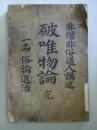 非僧非俗道人講述
破唯物論 完
一名俗論退治